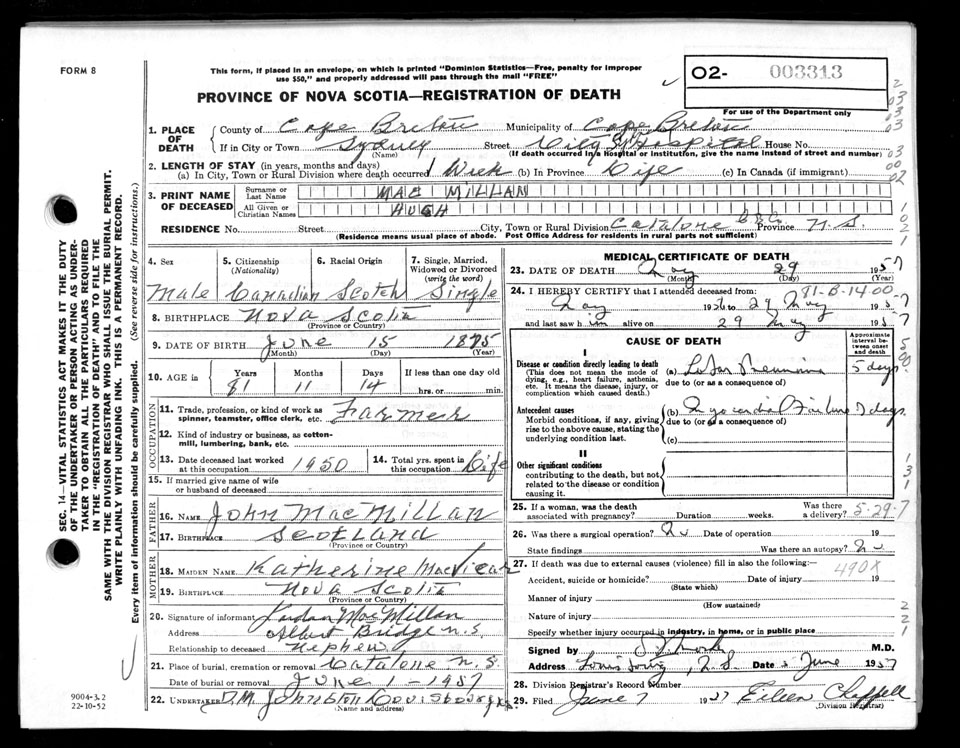 FORM 8
This form, if placed in an envelope, on which is printed "Dominion Statistics—Free, penalty for improper
use $50," and properly addressed will pass through the mail "FREE"
PROVINCE OF NOVA SCOTIA—REGISTRATION OF DEATH
O2- 003313
For use of the Department only
1. PLACE OF DEATH
County of Cape Breton Municipality of Cape Breton
If in City or Town Sydney Street City Hospital House No.
(Name) (If death occurred in a Hospital or institution, give the name instead of street and number)
2. LENGTH OF STAY (in years, months and days)
(a) In City, Town or Rural Division where death occurred 1 Week (b) In Province Life (c) In Canada (if immigrant)
3. PRINT NAME OF DECEASED
Surname or Last Name MAC MILLAN
All Given or Christian Names HUGH
RESIDENCE No. Street City, Town or Rural Division Catalone C.B.Co. Province N.S.
(Residence means usual place of abode. Post Office Address for residents in rural parts not sufficient)
4. Sex Male
5. Citizenship (Nationality) Canadian
6. Racial Origin Scotch
7. Single, Married, Widowed or Divorced (write the word) Single
8. BIRTHPLACE Nova Scotia
(Province or Country)
9. DATE OF BIRTH June 15 1875
(Month) (Day) (Year)
10. AGE in Years 81 Months 11 Days 14 If less than one day old hrs. or min.
OCCUPATION
11. Trade, profession, or kind of work as spinner, teamster, office clerk, etc. Farmer
12. Kind of industry or business, as cotton-mill, lumbering, bank, etc.
13. Date deceased last worked at this occupation 1950
14. Total yrs. spent in this occupation Life
15. If married give name of wife or husband of deceased
FATHER
16. NAME John MacMillan
17. BIRTHPLACE Scotland
(Province or Country)
MOTHER
18. MAIDEN NAME Katherine MacVicar
19. BIRTHPLACE Nova Scotia
(Province or Country)
20. Signature of informant MacMillan
Address Albert Bridge N.S.
Relationship to deceased Nephew
21. Place of burial, cremation or removal Catalone N.S.
Date of burial or removal June 1 - 1957
22. UNDERTAKER D.M. Johnston Louisbourg N.S.
(Name and address)
MEDICAL CERTIFICATE OF DEATH
23. DATE OF DEATH May 29 1957
(Month) (Day) (Year)
24. I HEREBY CERTIFY that I attended deceased from: 71-B-1400
May 1956 to 29 May 1957
and last saw him alive on 29 May 1957
CAUSE OF DEATH
Approximate interval between onset and death
I
Disease or condition directly leading to death
(This does not mean the mode of dying, e.g., heart failure, asthenia, etc. It means the disease, injury, or complication which caused death.)
(a) Lobar Pneumonia 5 days
due to (or as a consequence of)
Antecedent causes
Morbid conditions, if any, giving rise to the above cause, stating the underlying condition last.
(b) Myocardial Failure 7 days
due to (or as a consequence of)
(c)
II
Other significant conditions
contributing to the death, but not related to the disease or condition causing it.
25. If a woman, was the death associated with pregnancy? Duration weeks. Was there a delivery? 5-29-7
26. Was there a surgical operation? No Date of operation 19
State findings Was there an autopsy? No
27. If death was due to external causes (violence) fill in also the following:—
490X
Accident, suicide or homicide? Date of injury 19
(State which)
Manner of injury
(How sustained)
Nature of injury
Specify whether injury occurred in industry, in home, or in public place
Signed by M.D.
Address Louisbourg, N.S. Date 5 June 1957
28. Division Registrar's Record Number
29. Filed June 7 1957 Eileen Chappell
(Division Registrar)
SEC. 14—VITAL STATISTICS ACT MAKES IT THE DUTY
OF THE UNDERTAKER OR PERSON ACTING AS UNDER-
TAKER TO OBTAIN ALL THE PARTICULARS REQUIRED
IN THE "REGISTRATION OF DEATH" AND TO FILE THE
SAME WITH THE DIVISION REGISTRAR WHO SHALL ISSUE THE BURIAL PERMIT.
WRITE PLAINLY WITH UNFADING INK. THIS IS A PERMANENT RECORD.
Every item of information should be carefully supplied. (See reverse side for instructions.)
9004-3.2
22-10-52